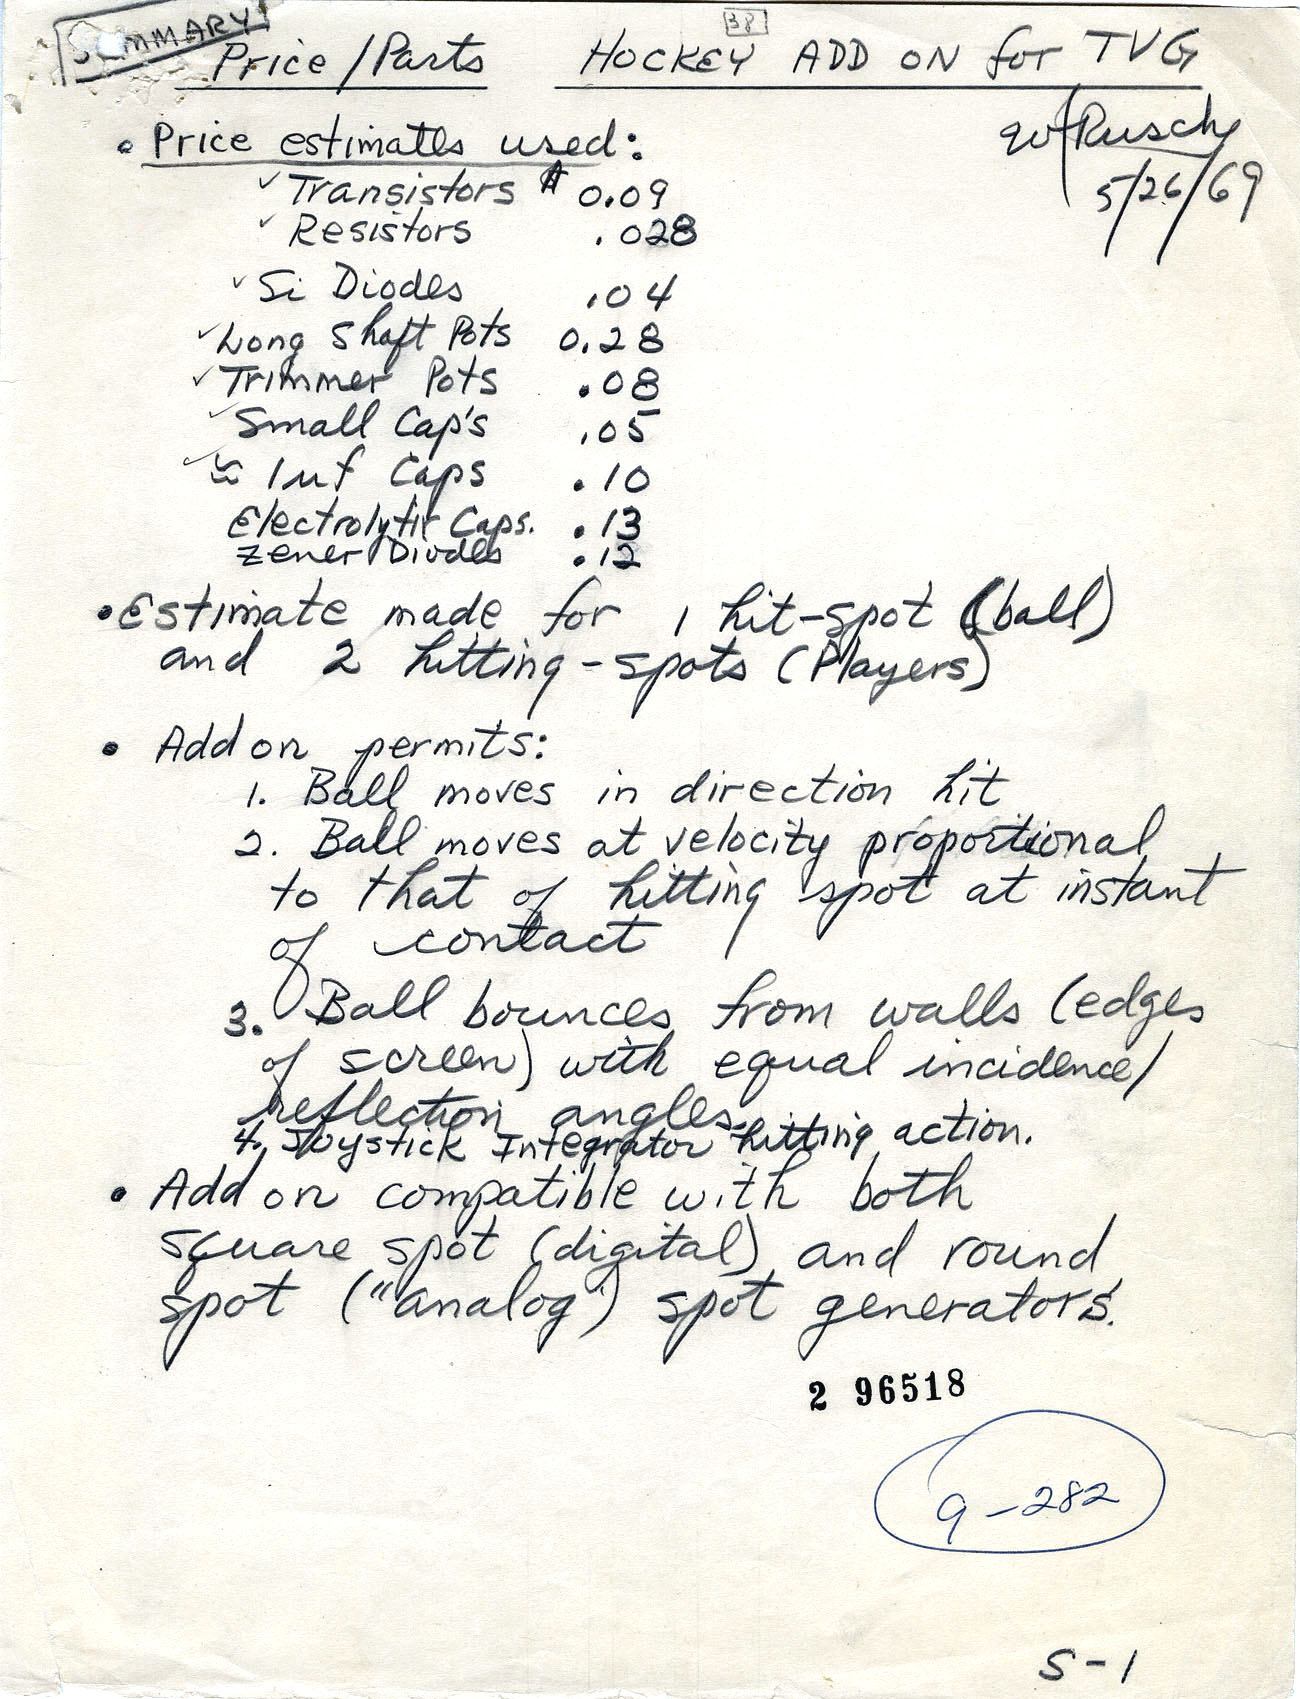 SUMMARY
38
Price/Parts HOCKEY ADD ON for TVG
W Rusch
5/26/69
• Price estimates used:
✓ Transistors $ 0.09
✓ Resistors .028
✓ Si Diodes .04
✓ Long Shaft Pots 0.28
✓ Trimmer Pots .08
✓ Small Cap's .05
✓ ≈ 1uf Caps .10
Electrolytic Caps. .13
Zener Diodes .12
• Estimate made for 1 hit-spot (ball)
and 2 hitting-spots (Players)
• Add on permits:
1. Ball moves in direction hit
2. Ball moves at velocity proportional
to that of hitting spot at instant
of contact
3. Ball bounces from walls (edges
of screen) with equal incidence/
reflection angles.
4. Joystick Integrator hitting action.
• Add on compatible with both
square spot (digital) and round
spot ("analog") spot generators.
2 96518
9-282
S-1